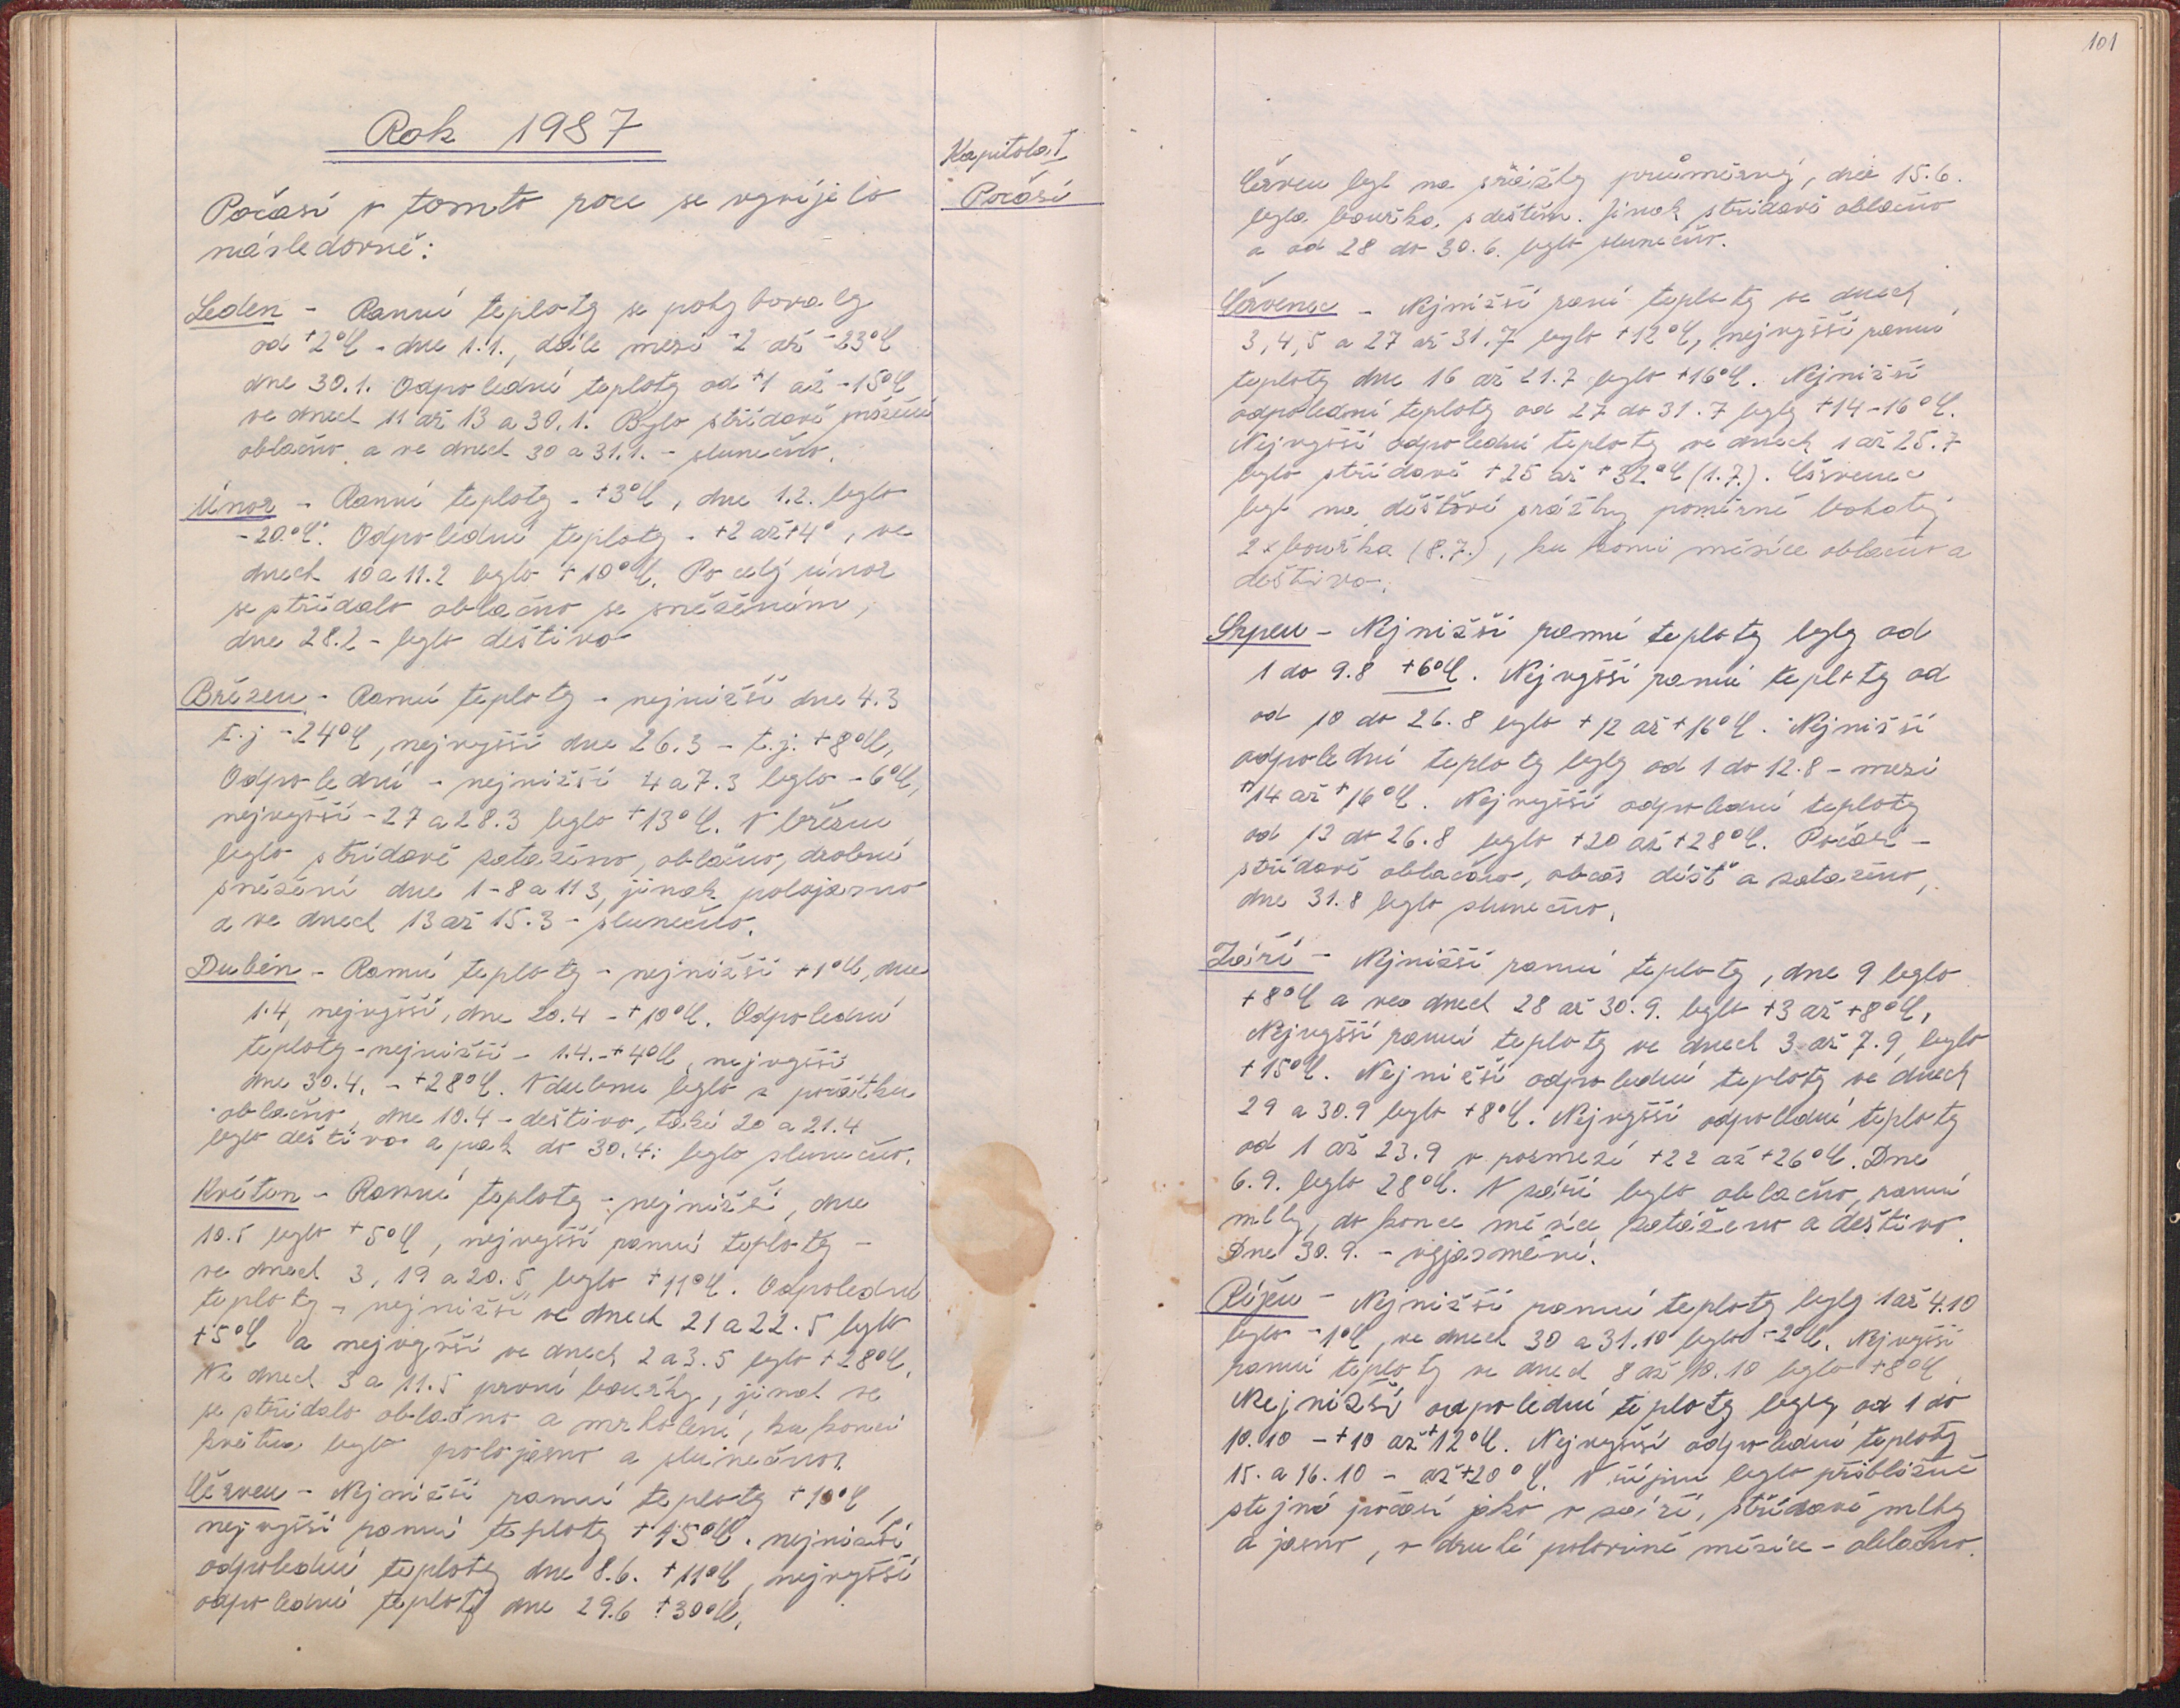 Rok 1987
Kapitola I
Počasí
Počasí v tomto roce se vyvíjelo
následovně:
Leden - Ranní teploty se pohybovaly
od +2°C - dne 1.1., dále mezi -2 až -23°C
dne 30.1. Odpolední teploty od +1 až -15°C
ve dnech 11 až 13 a 30.1. Bylo střídavě sněžení
oblačno a ve dnech 30 a 31.1. - slunečno.
Únor - Ranní teploty - +3°C, dne 1.2. bylo
-20°C. Odpolední teploty - +2 až +4°, ve
dnech 10 a 11.2 bylo +10°C. Po celý únor
se střídalo oblačno se sněžením,
dne 28.2 - bylo deštivo
Březen - Ranní teploty - nejnižší dne 4.3
t.j -24°C, nejvyšší dne 26.3 - t.j. +8°C,
Odpolední - nejnižší 4 a 7.3 bylo -6°C,
nejvyšší - 27 a 28.3 bylo +13°C. V březnu
bylo střídavě zataženo, oblačno, drobné
sněžení dne 1-8 a 11 3, jinak polojasno
a ve dnech 13 až 15.3 - slunečno.
Duben - Ranní teploty - nejnižší +1°C, dne
1.4, nejvyšší, dne 20.4 - +10°C. Odpolední
teploty - nejnižší - 1.4. - +4°C, nejvyšší
dne 30.4. - +28°C. V dubnu bylo z počátku
oblačno, dne 10.4 - deštivo, také 20 a 21.4
bylo deštivo a pak do 30.4: bylo slunečno.
Květen - Ranní teploty - nejnižší, dne
10.5 bylo +5°C, nejvyšší ranní teploty -
ve dnech 3, 19 a 20.5 bylo +11°C. Odpolední
teploty - nejnižší ve dnech 21 a 22.5 bylo
+5°C a nejvyšší ve dnech 2 a 3.5 bylo +28°C.
Ve dnech 3 a 11.5 první bouřky, jinak se
se střídalo oblačno a mrholení, ku konci
května bylo polojasno a slunečno.
Červen - Nejnižší ranní teploty +10°C,
nejvyšší ranní teploty +15°C. nejnižší
odpolední teploty dne 8.6. +11°C, nejvyšší
odpolední teploty dne 29.6 +30°C.
101
Červen byl na srážky průměrný, dne 15.6.
byla bouřka s deštěm. Jinak střídavě oblačno
a od 28 do 30.6. bylo slunečno.
Červenec - Nejnižší raní teploty ve dnech
3, 4, 5 a 27 až 31.7 bylo +12°C, nejvyšší ranní
teploty dne 16 až 21.7 bylo +16°C. Nejnižší
odpolední teploty od 27 do 31.7 byly +14-16°C.
Nejvyšší odpolední teploty ve dnech 1 až 25.7
bylo střídavě +25 až +32°C (1.7.). Červenec
byl na dešťové srážky poměrně bohatý
2x bouřka (8.7.), ku konci měsíce oblačno a
deštivo.
Srpen - Nejnižší ranní teploty byly od
1 do 9.8 +6°C. Nejvyšší ranní teploty od
od 10 do 26.8 bylo +12 až +16°C. Nejnižší
odpolední teploty byly od 1 do 12.8 - mezi
+14 až +16°C. Nejvyšší odpolední teploty
od 13 do 26.8 bylo +20 až +28°C. Počasí -
střídavě oblačno, občas déšť a zataženo,
dne 31.8 bylo slunečno.
Září - Nejnižší ranní teploty, dne 9 bylo
+8°C a ve dnech 28 až 30.9. bylo +3 až +8°C,
Nejvyšší ranní teploty ve dnech 3 až 7.9 bylo
+15°C. Nejnižší odpolední teploty ve dnech
29 a 30.9 bylo +8°C. Nejvyšší odpolední teploty
od 1 až 23.9 v rozmezí +22 až +26°C. Dne
6.9. bylo 28°C. V září bylo oblačno, ranní
mlhy, do konce měsíce zataženo a deštivo.
Dne 30.9. - vyjasnění.
Říjen - Nejnižší ranní teploty byly 1 až 4.10
bylo -1°C, ve dnech 30 a 31.10 bylo -2°C. Nejvyšší
ranní teploty ve dnech 8 až 10.10 bylo +8°C
Nejnižší odpolední teploty byly od 1 do
10.10 - +10 až +12°C. Nejvyšší odpolední teploty
15. a 16.10 - až +20°C. V říjnu bylo přibližně
stejné počasí jako v září, střídavě mlhy
a jasno, v druhé polovině měsíce - oblačno.